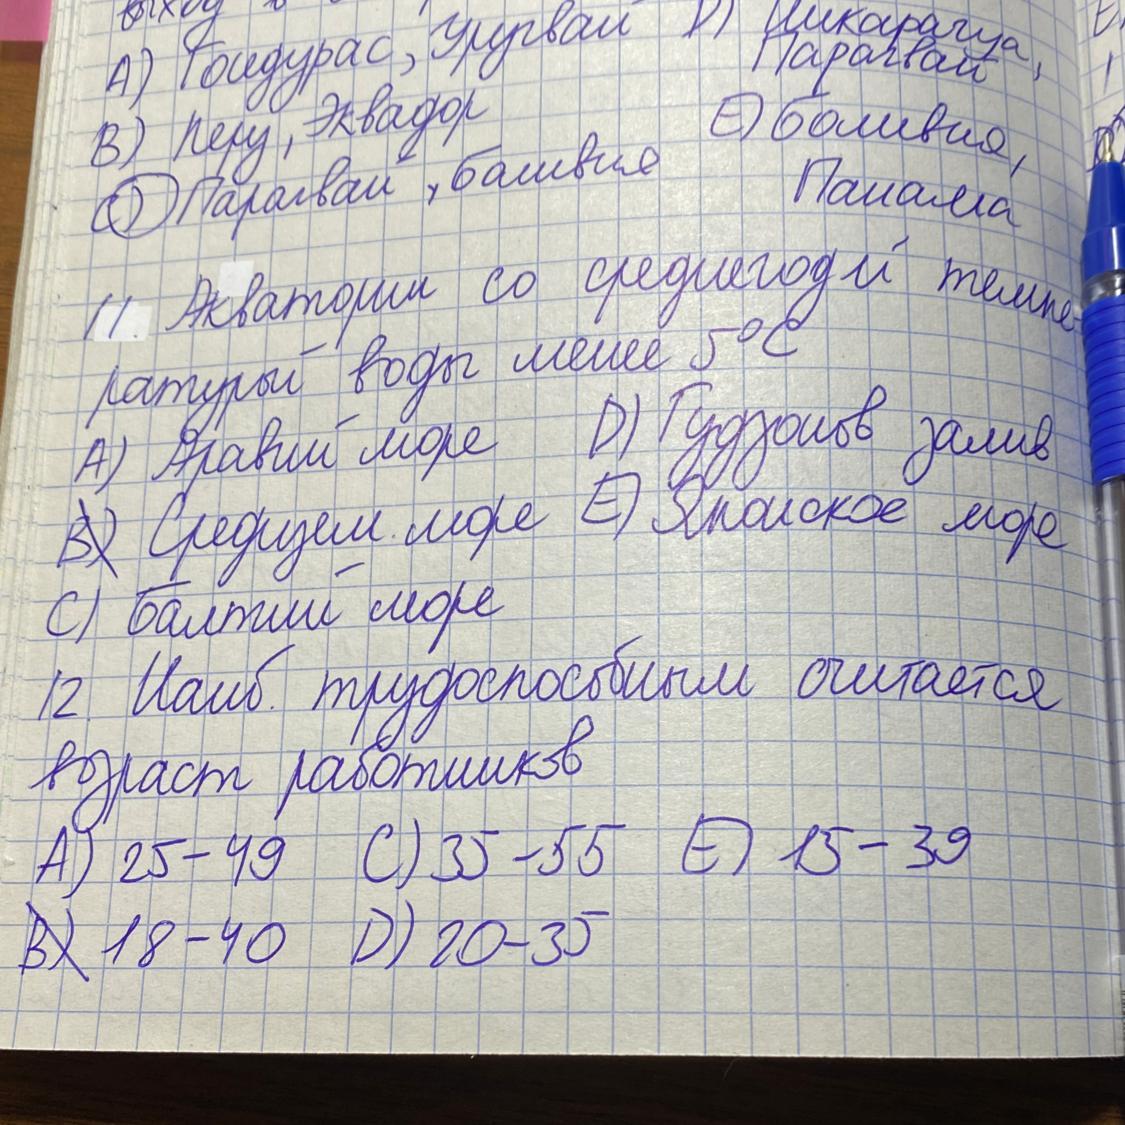 выход
А) Гондурас, Уругвай D) Никарагуа,
Парагвай
В) Перу, Эквадор E) Боливия,
Панама
С) Парагвай, Боливия
11. Акватории со среднегод й темпе-
ратурый воды менее 5°C
А) Аравий море D) Гудзонов залив
В) Средизем. море E) Японское море
С) Балтий море
12. Наиб. трудоспособным считается
возраст работников
А) 25-49 C) 35-55 E) 15-39
В) 18-40 D) 20-35